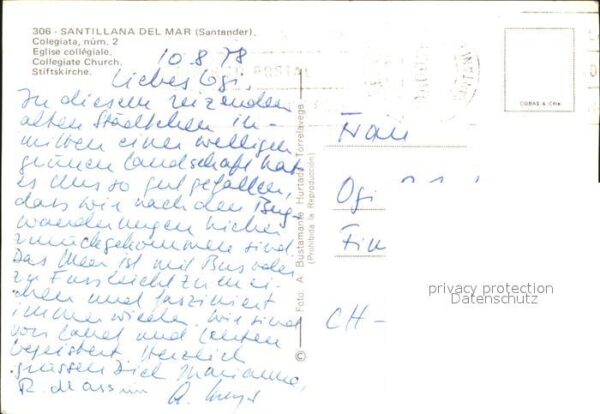 306 - SANTILLANA DEL MAR (Santander).
Colegiata, núm. 2
Eglise collégiale.
Collegiate Church.
Stiftskirche.
10.8.78
Liebes Ogi,
In diesem reizenden
alten Städtchen in-
mitten einer welligen
grünen Landschaft hat
es uns so gut gefallen,
dass wir nach den Berg-
wanderungen hieher
zurückgekommen sind.
Das Meer ist mit Bus oder
zu Fuss leicht zu errei-
chen und fasziniert
immer wieder. Wir sind
von Land und Leuten
begeistert. Herzlich
grüssen Dich Marianne,
R.
© Foto A. Bustamante Hurtado - Torrelavega
(Prohibida la Reproducción)
POSTAL
COBAS & Cñía
Frau
Ogi
CH -
privacy protection
Datenschutz